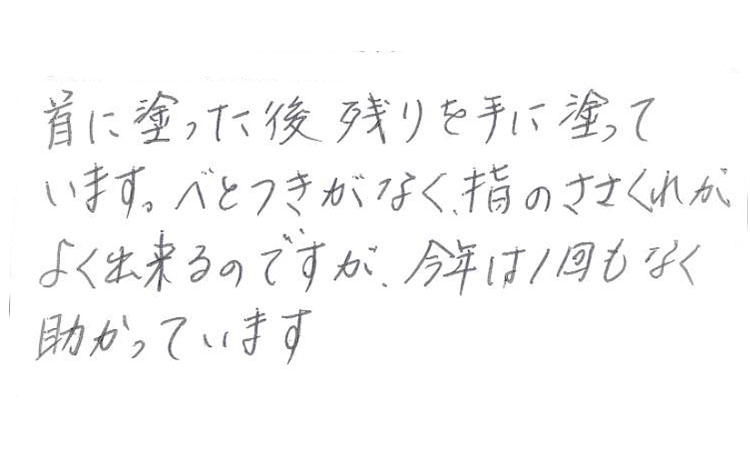 首に塗った後 残りを手に塗って
います。べとつきがなく、指のささくれが
よく出来るのですが、今年は1回もなく
助かっています